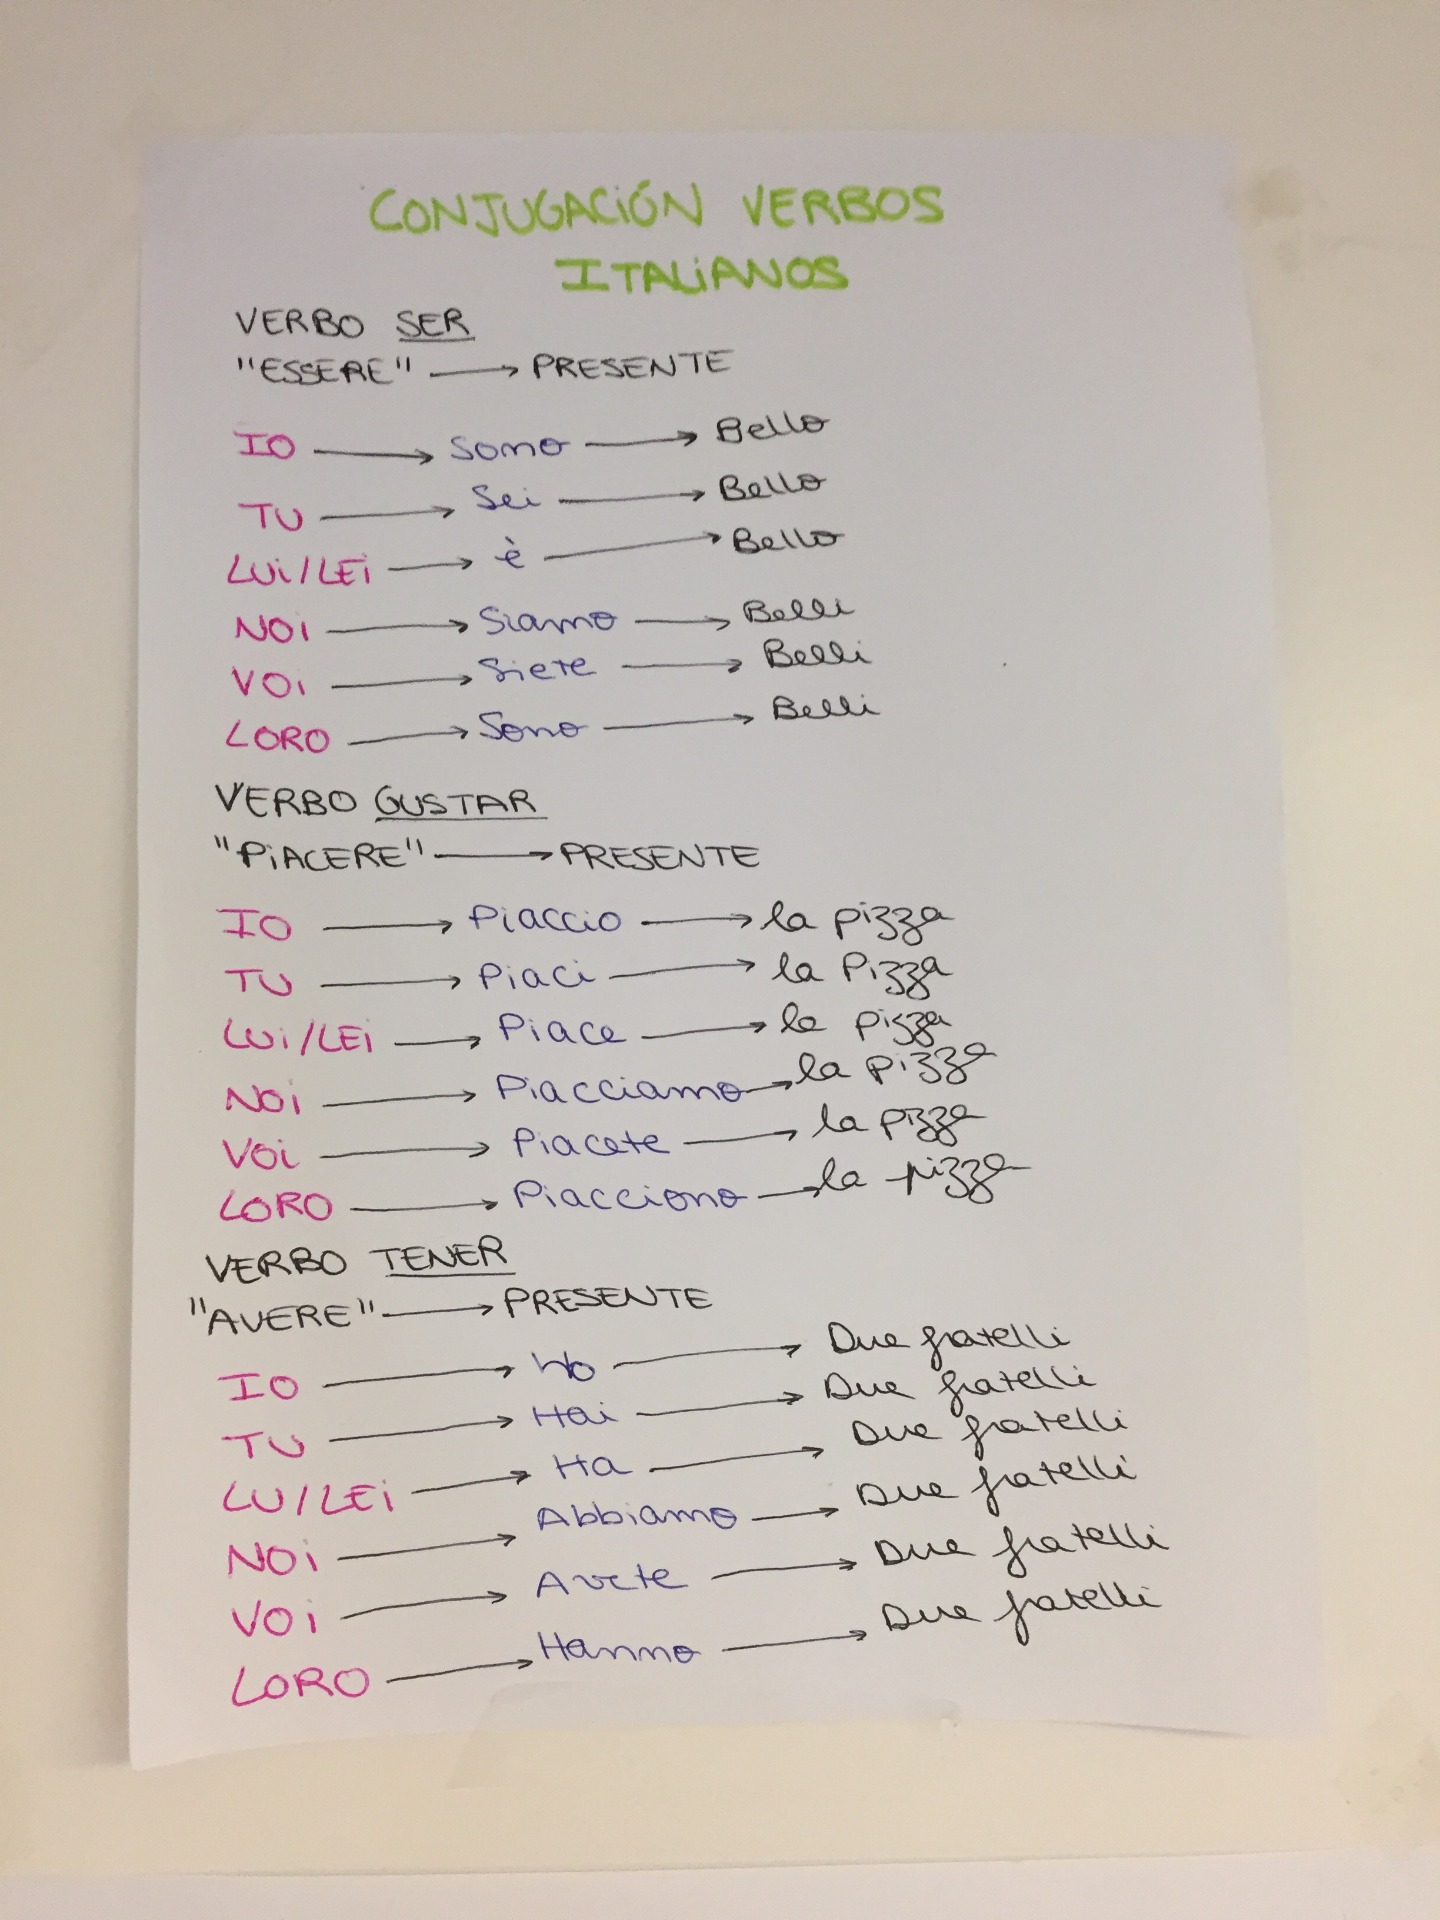 CONJUGACIÓN VERBOS
ITALIANOS
VERBO SER
"ESSERE" → PRESENTE
IO → Sono → Bello
TU → Sei → Bello
LUI/LEI → è → Bello
NOI → Siamo → Belli
VOI → Siete → Belli
LORO → Sono → Belli
VERBO GUSTAR
"PIACERE" → PRESENTE
IO → Piaccio → la pizza
TU → Piaci → la Pizza
LUI/LEI → Piace → la pizza
NOI → Piacciamo → la pizza
VOI → Piacete → la pizza
LORO → Piacciono → la pizza
VERBO TENER
"AVERE" → PRESENTE
IO → Ho → Due fratelli
TU → Hai → Due fratelli
LU/LEI → Ha → Due fratelli
NOI → Abbiamo → Due fratelli
VOI → Avete → Due fratelli
LORO → Hanno → Due fratelli